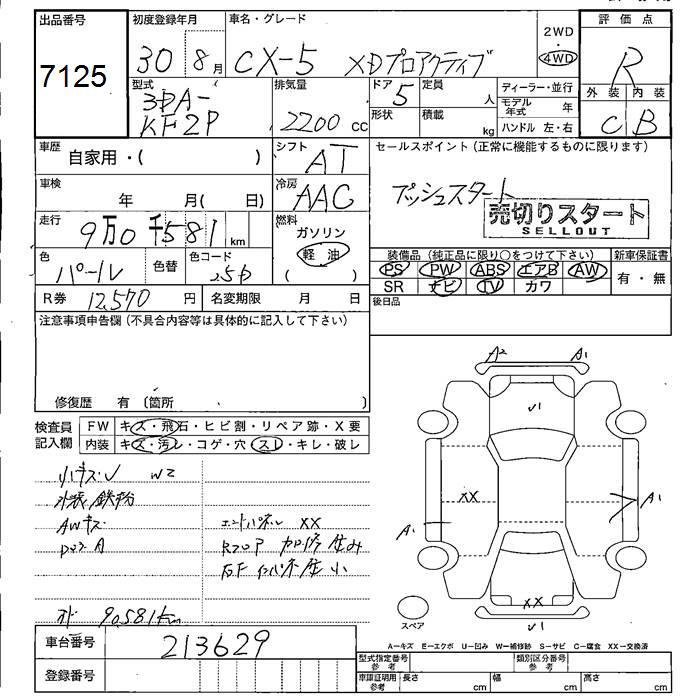 出品番号
7125
初度登録年月
30 8月
車名・グレード
CX-5 XDプロアクティブ
2WD
4WD
評価点
R
外装 内装
C B
型式
3DA-
KF2P
排気量
2200 cc
ドア
5
定員
人
形状
積載
kg
ディーラー・並行
モデル年式 年
ハンドル 左・右
車歴
自家用・( )
シフト
AT
セールスポイント(正常に機能するものに限ります)
プッシュスタート
売切りスタート
SELLOUT
車検
年 月( 日)
冷房
AAC
走行
9万0千581 km
燃料
ガソリン
軽油
( )
色
パール
色替
色コード
25D
装備品(純正品に限り○をつけて下さい)
新車保証書
PS PW ABS エアB AW
有・無
SR ナビ TV カワ
R券 12,570 円
名変期限 月 日
後日品
注意事項申告欄(不具合内容等は具体的に記入して下さい)
修復歴 有〔箇所
検査員記入欄
FW キズ・飛石・ヒビ割・リペア跡・X要
内装 キズ・汚れ・コゲ・穴・スレ・キレ・破レ
W2
外装鉄粉
AWキズ
エンドパネル XX
90,581km
A2 A1
√1
XX
A1
A1
XX
√1
スペア
A-キズ E-エクボ U-凹み W-補修跡 S-サビ C-腐食 XX-交換済
車台番号
213629
登録番号
型式指定番号 参考
類別区分番号 参考
車庫証明用 参考
長さ cm
幅 cm
高さ cm